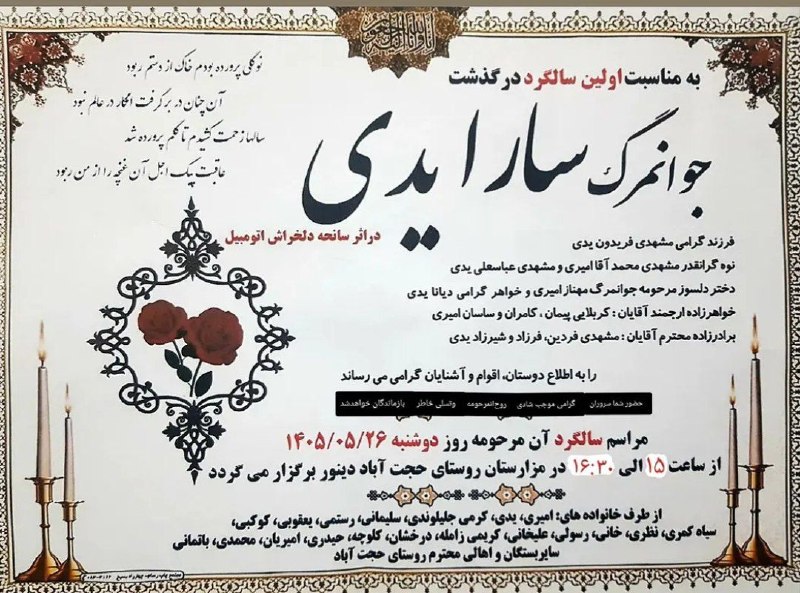 انا لله و انا الیه راجعون
به مناسبت اولین سالگرد درگذشت
نوگلی پرورده بودم خاک از دستم ربود
آن چنان در بر گرفت انگار در عالم نبود
سالها زحمت کشیدم تا گلم پرورده شد
عاقبت پیک اجل آن غنچه را از من ربود
جوانمرگ سارا یدی
در اثر سانحه دلخراش اتومبیل
فرزند گرامی مشهدی فریدون یدی
نوه گرانقدر مشهدی محمد آقا امیری و مشهدی عباسعلی یدی
دختر دلسوز مرحومه جوانمرگ مهناز امیری و خواهر گرامی دیانا یدی
خواهرزاده ارجمند آقایان : کربلایی پیمان ، کامران و ساسان امیری
برادرزاده محترم آقایان : مشهدی فردین، فرزاد و شیرزاد یدی
را به اطلاع دوستان، اقوام و آشنایان گرامی می رساند
حضور شما سروران گرامی موجب شادی روح آنمرحومه وتسلی خاطر بازماندگان خواهدشد
مراسم سالگرد آن مرحومه روز دوشنبه ۱۴۰۵/۰۵/۲۶
از ساعت ۱۵ الی ۱۶:۳۰ در مزارستان روستای حجت آباد دینور برگزار می گردد
از طرف خانواده های: امیری، یدی، کرمی جلیلوندی، سلیمانی، رستمی، یعقوبی، کوکبی،
سیاه کمری، نظری، خانی، رسولی، علیخانی، کریمی زامله، درخشان، کلوچه، حیدری، امیریان، محمدی، باتمانی
سایربستگان و اهالی محترم روستای حجت آباد